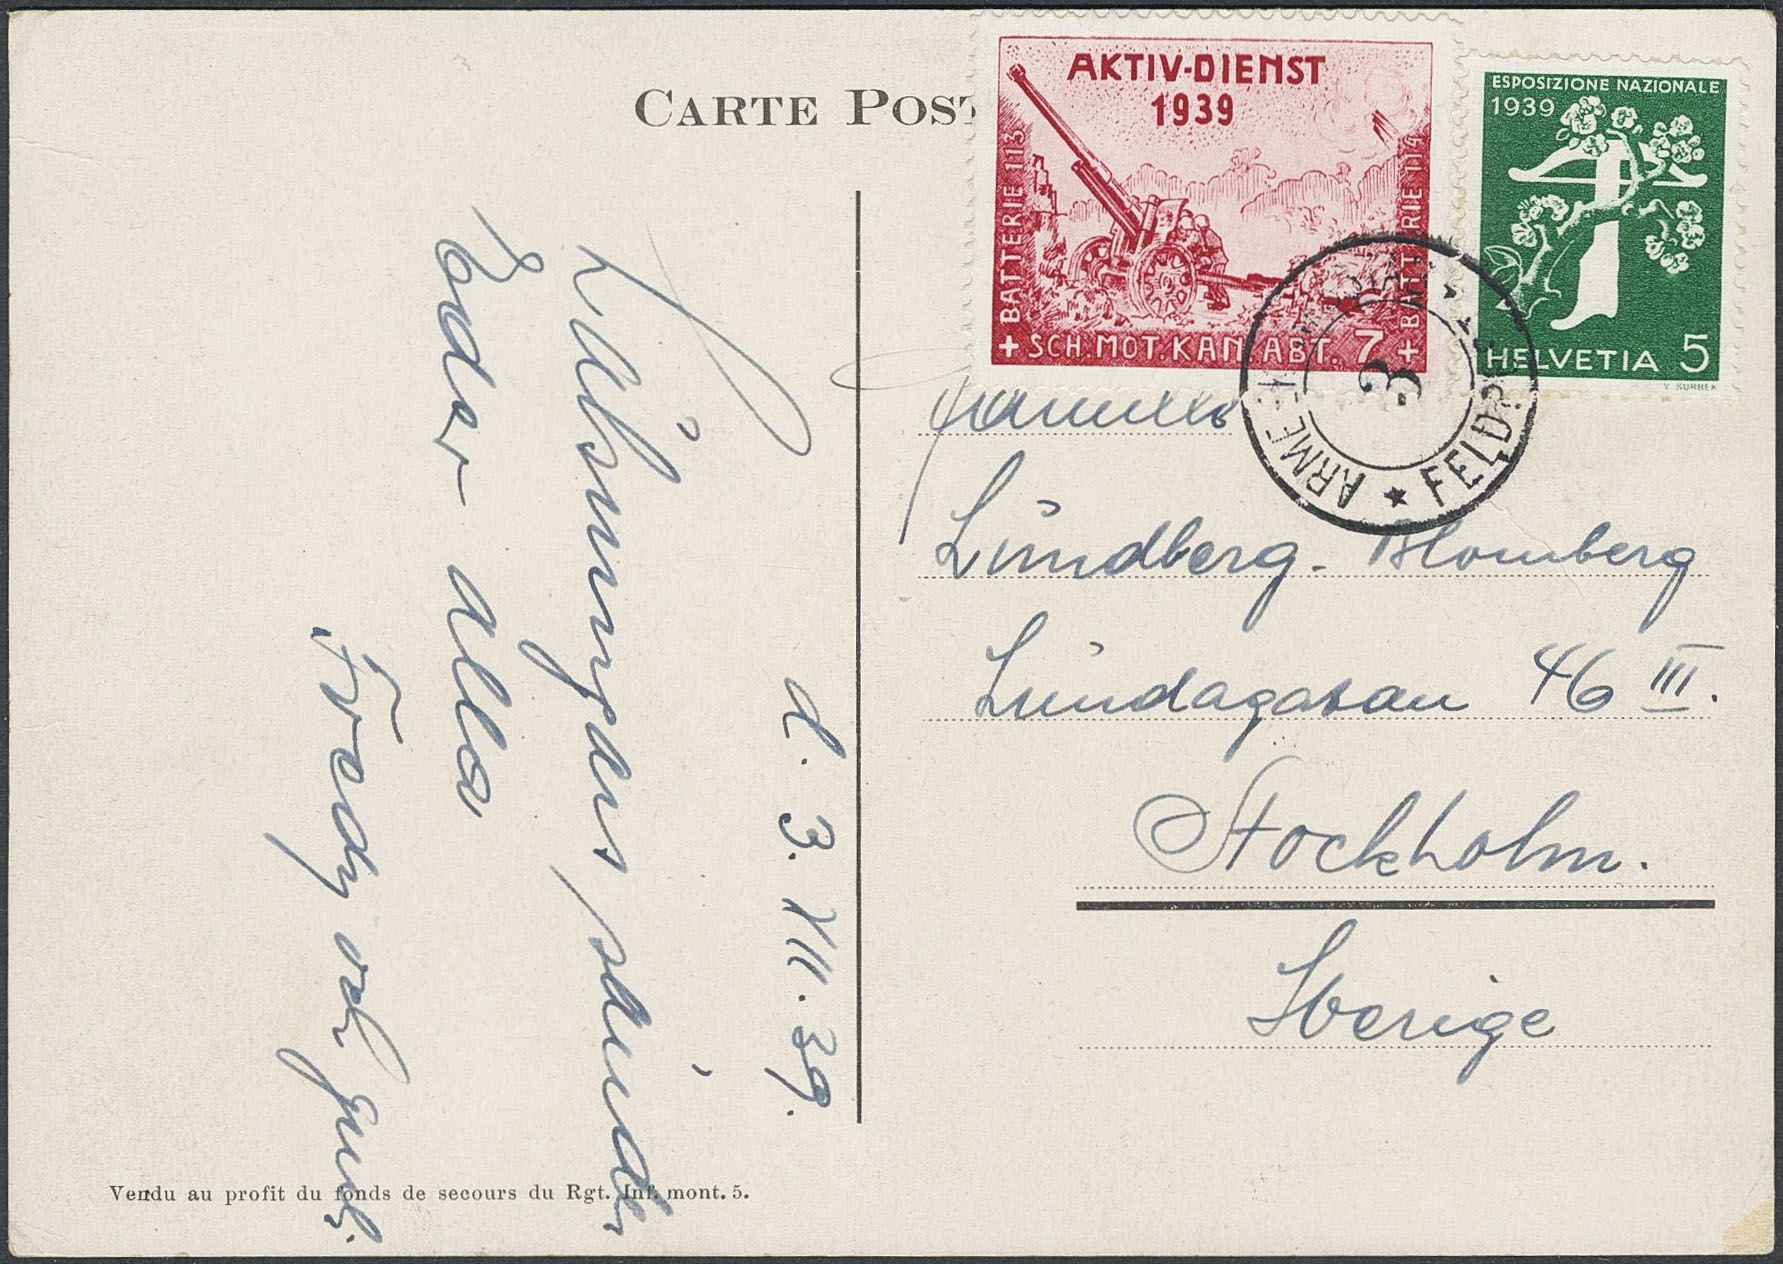 CARTE POST
AKTIV-DIENST
1939
BATTERIE 113
BATTERIE 114
+ SCH. MOT. KAN. ABT. 7 +
ESPOSIZIONE NAZIONALE
1939
HELVETIA 5
V. SURBEK
ARMEE
3
★ FELDPE
d. 3. XII. 39.
Lüdberg - Blomberg
Lundagatan 46 III.
Stockholm.
Sverige
sänder
Eder alla
Fredy och
Vendu au profit du fonds de secours du Rgt. Inf. mont. 5.